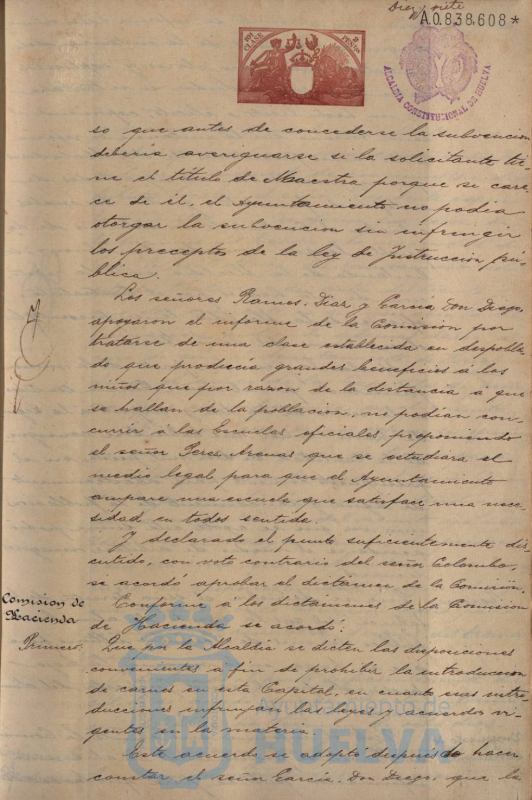 Diez y siete
N A.0.838.608*
ALCALDIA CONSTITUCIONAL DE HUELVA
so que antes de concederse la subvencion
deberia averiguarse si la solicitante tie-
ne el titulo de Maestra porque si care-
ce de él, el Ayuntamiento no podia
otorgar la subvencion sin infringir
los preceptos de la ley de Instruccion pú-
blica.
Los señores Ramos, Diaz y Garcia, Don Diego,
apoyaron el informe de la Comision por
tratarse de una clase establecida en despobla-
do que producia grandes beneficios á los
niños que por razon de la distancia á que
se hallan de la poblacion, no podian con-
currir á las Escuelas oficiales, proponiendo
el señor Perez Arenas que se estudiara el
medio legal para que el Ayuntamiento
ampare una escuela que satisface una nece-
sidad en todos sentidos.
Y declarado el punto suficientemente dis-
cutido, con voto contrario del señor Colombo,
se acordó aprobar el dictámen de la Comision.
Comision de
Hacienda
Conforme á los dictámenes de la Comision
de Hacienda se acordó:
Primero:
Que por la Alcaldia se dicten las disposiciones
convenientes á fin de prohibir la introduccion
de carnes en esta Capital, en cuanto esas intro-
ducciones infrinjan las leyes y acuerdos vi-
gentes en la materia.
Este acuerdo se adoptó despues de hacer
constar el señor García, Don Diego, que la
Ayuntamiento de
HUELVA